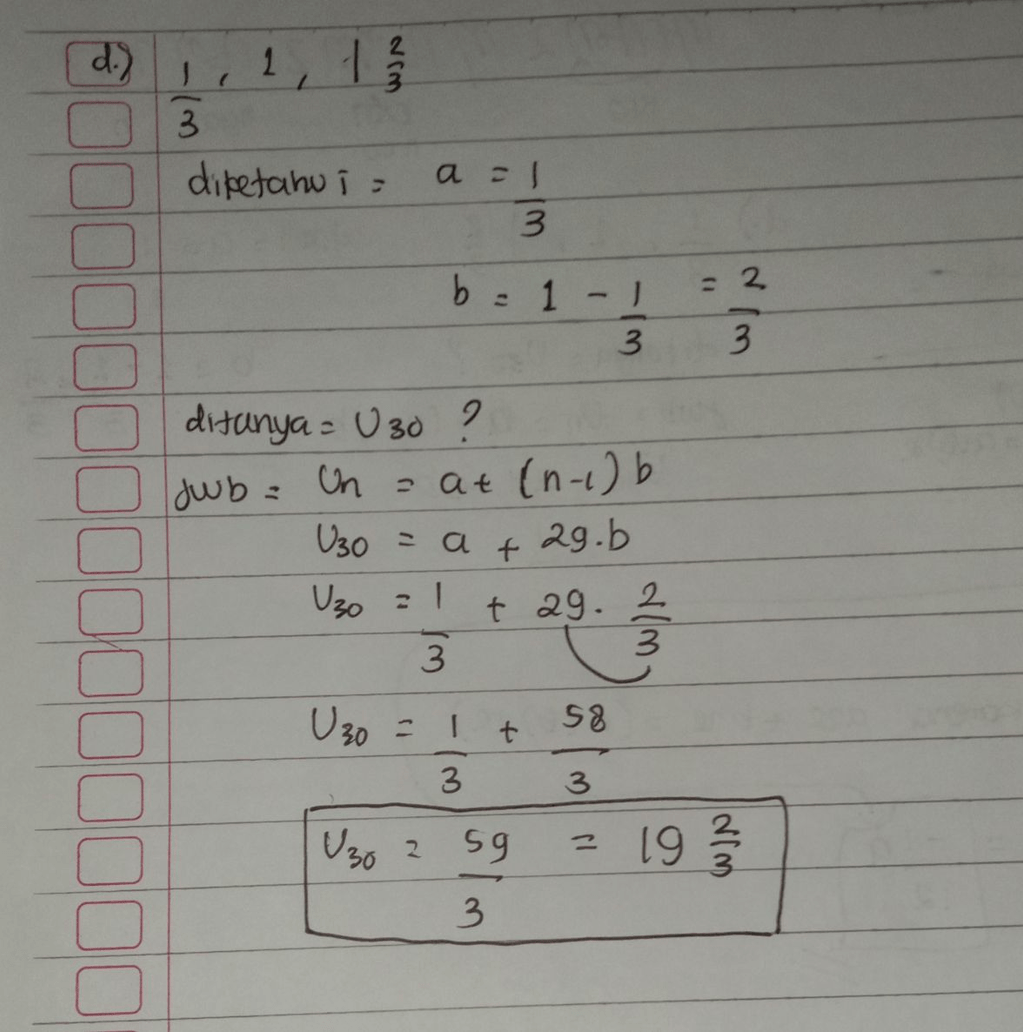 d.) 1/3, 1, 1 2/3
diketahui = a = 1/3
b = 1 - 1/3 = 2/3
ditanya = U30 ?
jwb = Un = a + (n-1) b
U30 = a + 29.b
U30 = 1/3 + 29. 2/3
U30 = 1/3 + 58/3
U30 = 59/3 = 19 2/3